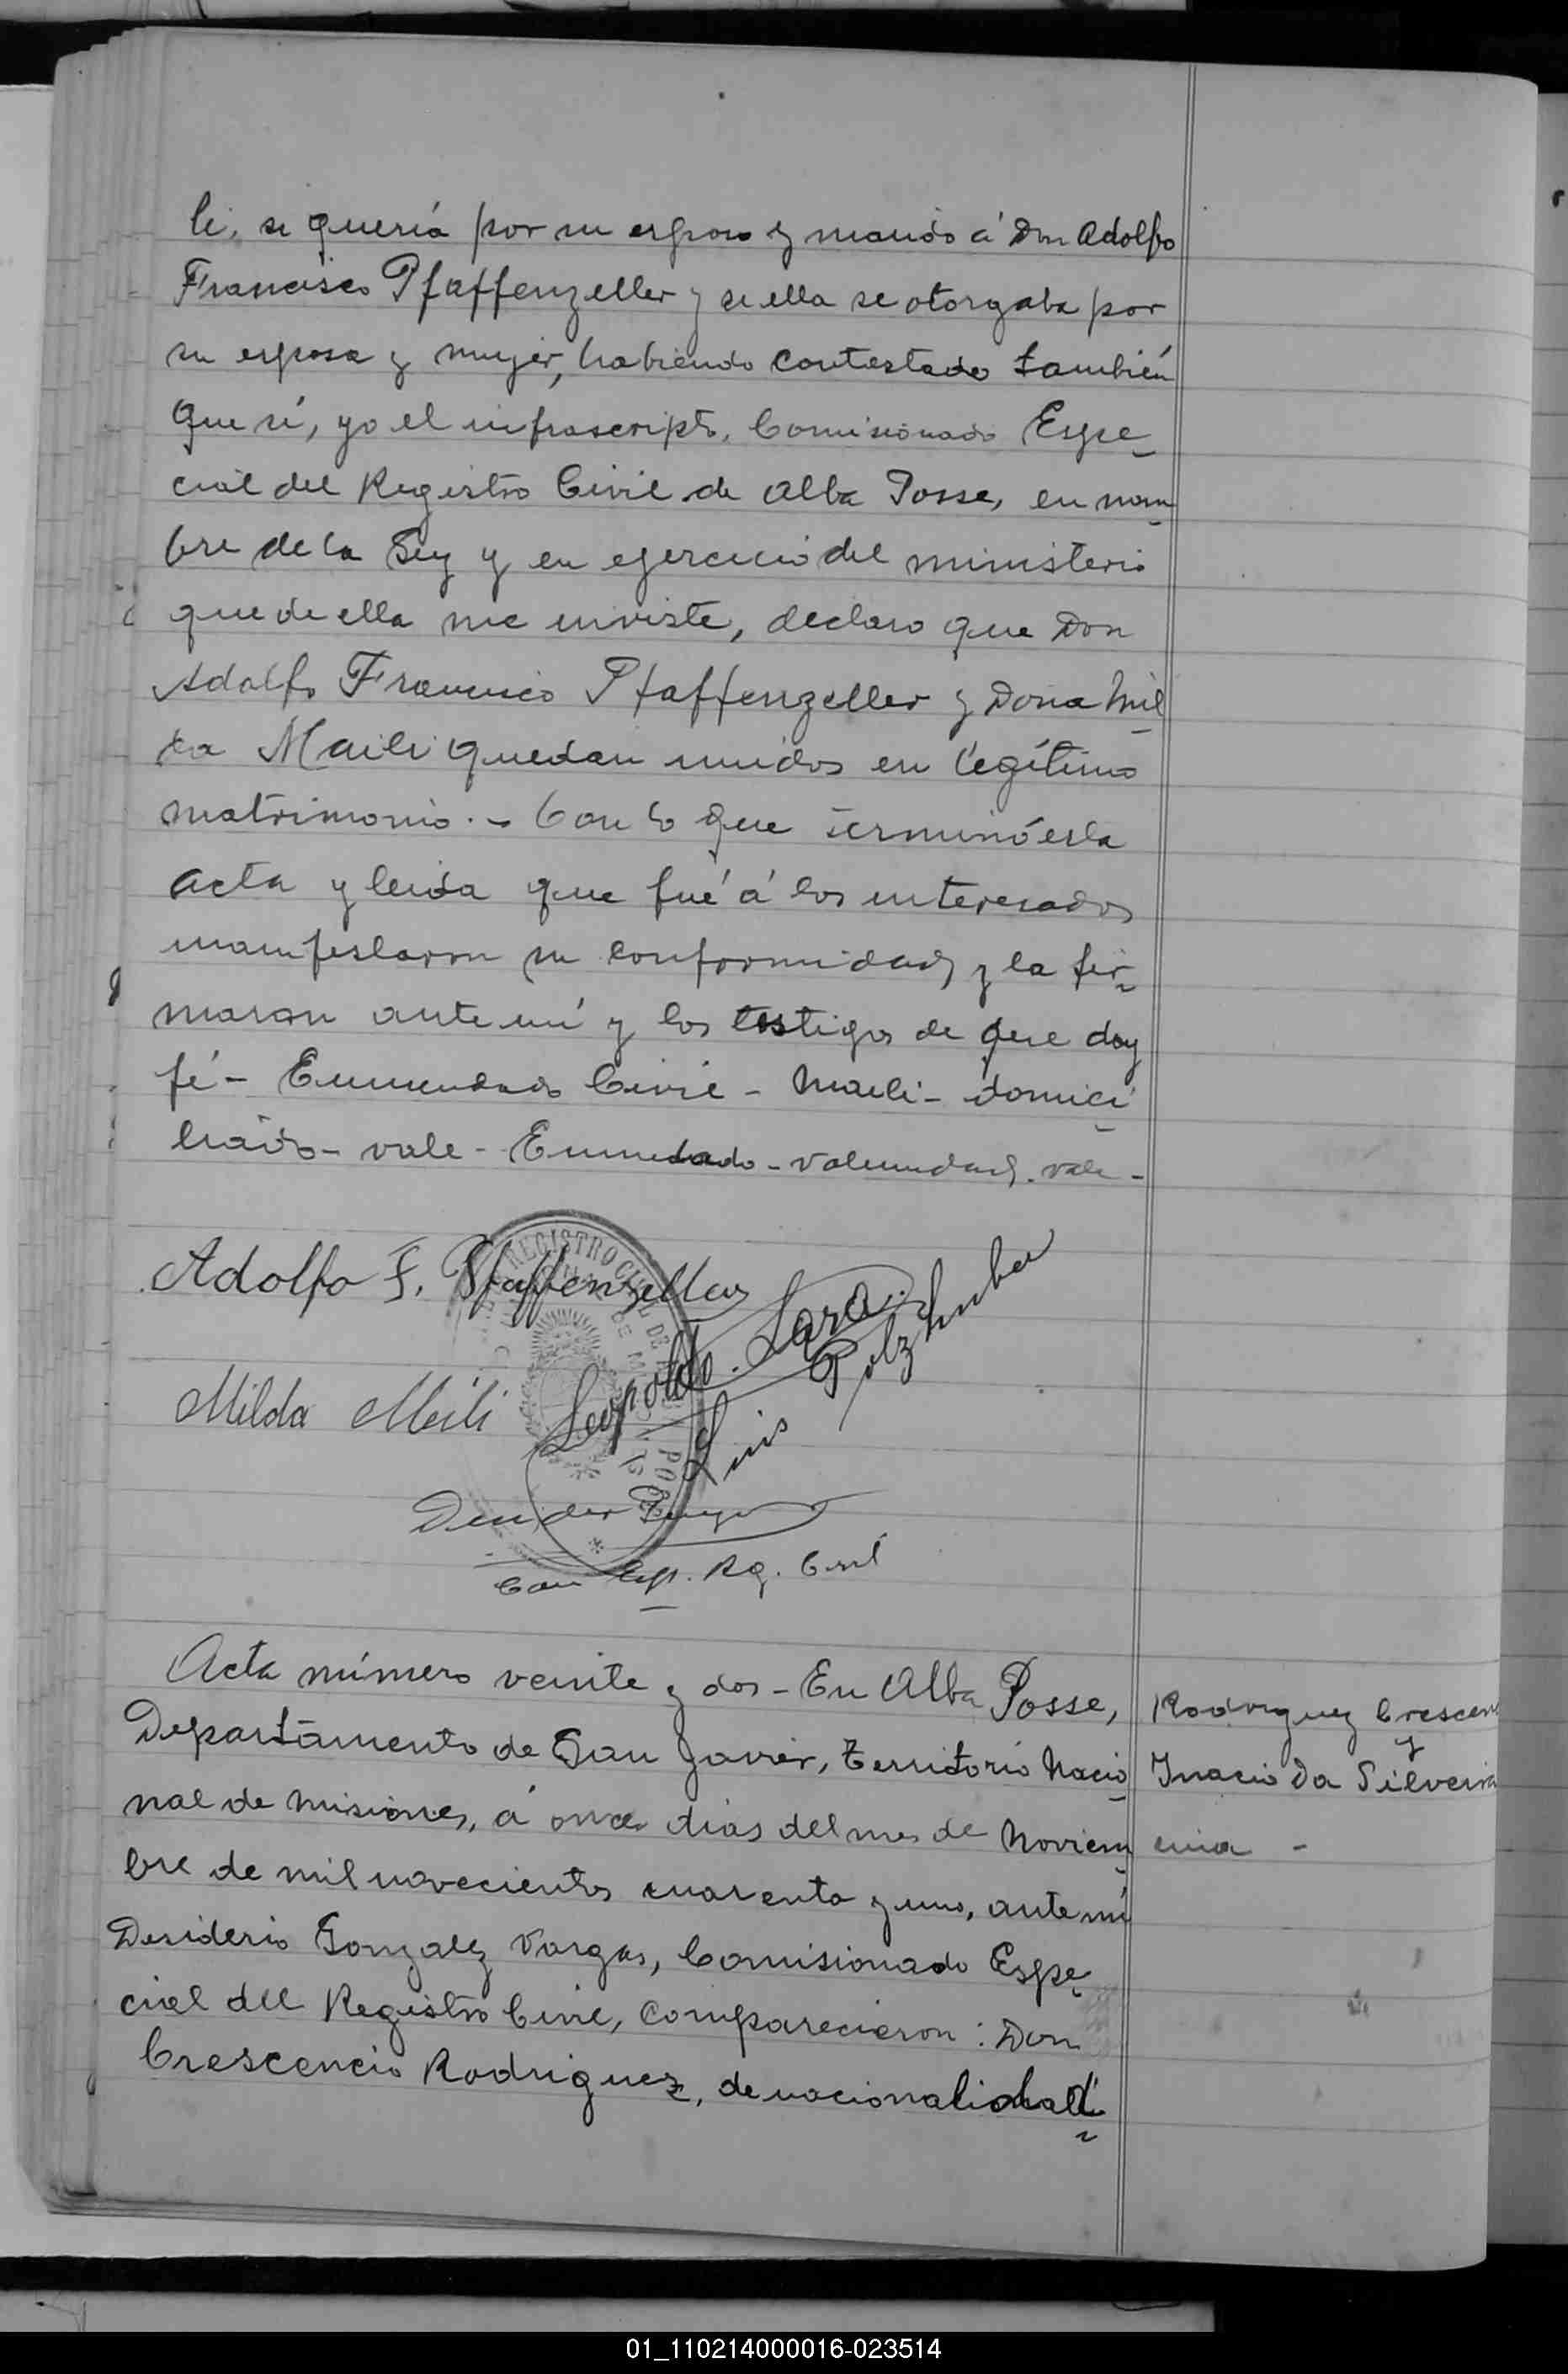 li, si quería por su esposo y marido á Don Adolfo
Francisco Pfaffenzeller y si ella se otorgaba por
su esposa y mujer, habiendo contestado también
que sí, yo el infrascripto, Comisionado Espe-
cial del Registro Civil de Alba Posse, en nom-
bre de la Ley y en ejercicio del ministerio
que de ella me inviste, declaro que Don
Adolfo Francisco Pfaffenzeller y Doña Mil-
da Maili quedan unidos en legítimo
matrimonio.- Con lo que terminó esta
acta y leida que fué á los interesados
manifestaron su conformidad y la fir-
maron ante mí y los testigos de que doy
fé - Enmendado Civil - Maili - domici-
liado - vale - Enmendado - vale -
Adolfo F. Pfaffenzeller
REGISTRO CIVIL DE
Leopoldo Lara
Luis Polzhuber
Milda Meili
Com Esp. Rg. Civil
Acta número veinte y dos - En Alba Posse,
Departamento de San Javier, Territorio Nacio-
nal de Misiones, á once días del mes de Noviem-
bre de mil novecientos cuarenta y uno, ante mí
Desiderio Gonzalez Vargas, Comisionado Espe-
cial del Registro Civil, comparecieron: Don
Crescencio Rodriguez, de nacionalidad
Rodriguez Crescen
y
Inacio Da Silveira
01_110214000016-023514